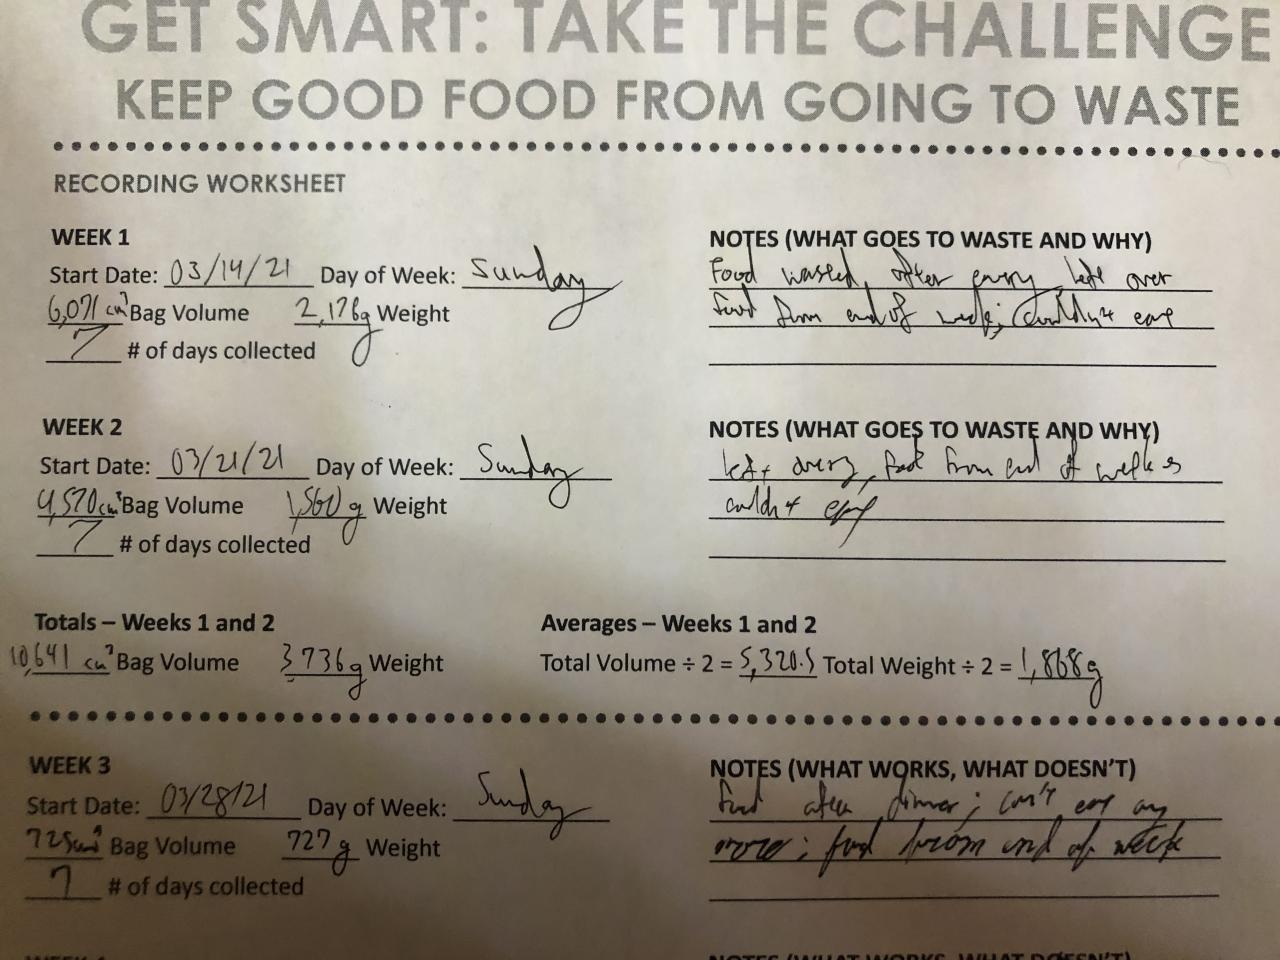 GET SMART: TAKE THE CHALLENGE
KEEP GOOD FOOD FROM GOING TO WASTE
RECORDING WORKSHEET
WEEK 1
Start Date: 03/14/21 Day of Week: Sunday
6,071 cm³ Bag Volume 2,176g Weight
7 # of days collected
NOTES (WHAT GOES TO WASTE AND WHY)
Food wasted after every left over
food from end of week; couldn't
WEEK 2
Start Date: 03/21/21 Day of Week: Sunday
4,570cm³ Bag Volume 1,560g Weight
7 # of days collected
NOTES (WHAT GOES TO WASTE AND WHY)
left food from end of
couldn't
Totals – Weeks 1 and 2
10,641 cm³ Bag Volume 3736g Weight
Averages – Weeks 1 and 2
Total Volume ÷ 2 = 5,320.5 Total Weight ÷ 2 = 1,868g
WEEK 3
Start Date: 03/28/21 Day of Week: Sunday
Bag Volume 727g Weight
7 # of days collected
NOTES (WHAT WORKS, WHAT DOESN'T)
food after dinner; can't eat any
more; food from end of week
NOTES (WHAT WORKS, WHAT DOESN'T)